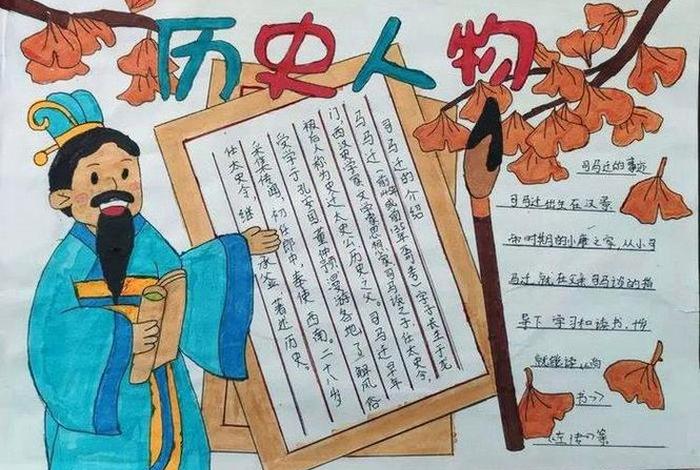 历史人物
司马迁的介绍
司马迁(前145年或前135年-不可考)字子长生于龙
门,西汉史学家文学家思想家司马谈之子,任太史令,
被后人称为史迁太史公历史之父。司马迁早年
受学于孔安国董仲舒,漫游各地,了解风俗
采集传闻,初任郎中,奉使西南。二十八岁
任太史令,继承 著述历史。
司马迁的事迹
司马迁出生在汉景
帝时期的小康之家,从小司
马迁就在父亲司马谈的指
导下学习和读书,10岁
就能读
书>>